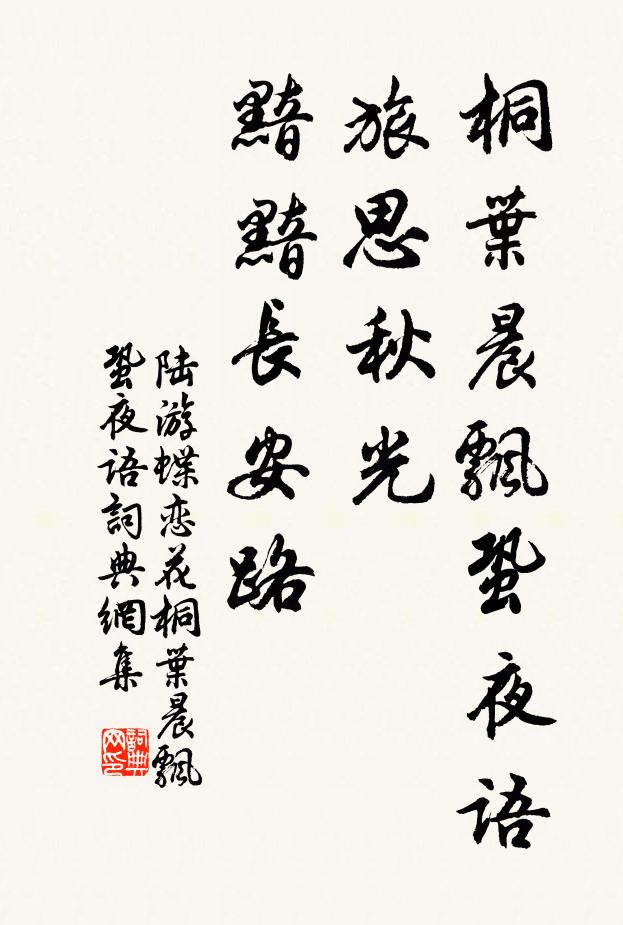 桐葉晨飄蛩夜语
旅思秋光
黯黯長安路
陆游蝶恋花桐葉晨飄
蛩夜语詞典網集
詞典
网印